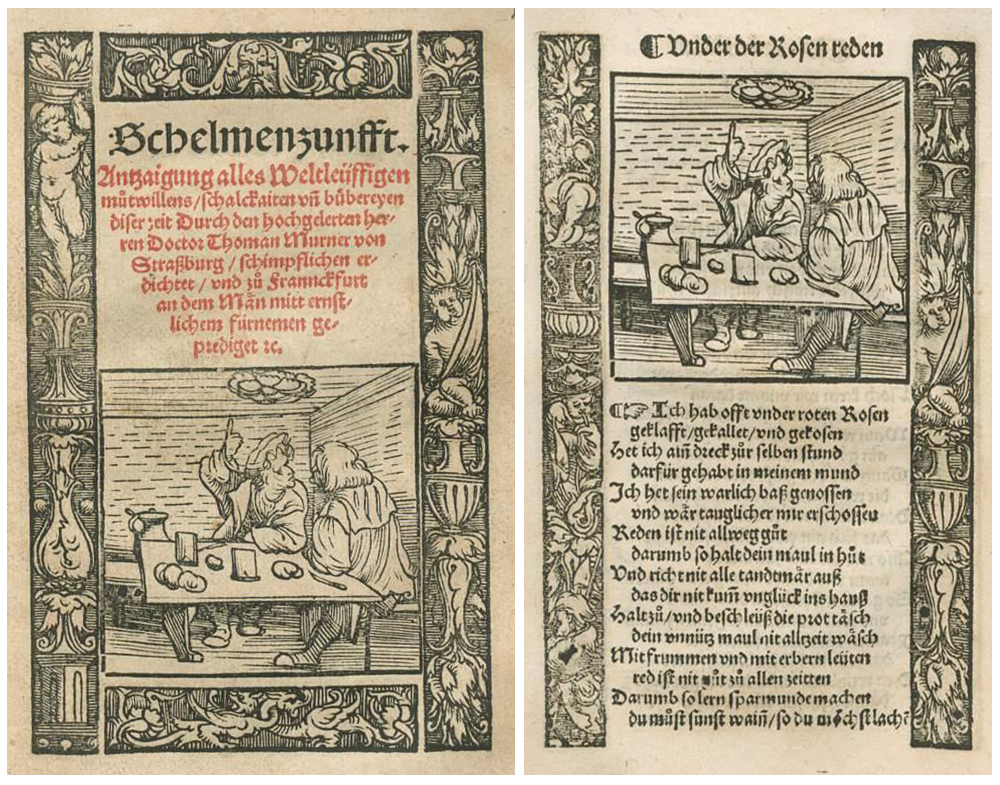 Schelmenzunfft.
Antzaigung alles Weltleüffigen
můtwillens/schalckaiten vñ bübereyen
diser zeit Durch den hochgelerten her-
ren Doctor Thoman Murner von
Straßburg / schimpflichen er-
dichtet / vnd zů Franckfurt
an dem Män mitt ernst-
lichem fürnemen ge-
prediget ꝛc.
¶ Vnder der Rosen reden
¶☞ Ich hab offt vnder roten Rosen
geklafft/gekallet/vnd gekosen
Het ich ain dreck zůr selben stund
darfür gehabt in meinem mund
Ich het sein warlich baß genossen
vnd wär tauglicher mir erschossen
Reden ist nit allweg gůt
darumb so halt dein maul in hůt
Vnd richt nit alle tandtmär auß
das dir nit kum̃ vnglück ins hauß
Halt zů/vnd beschleüß die prot täsch
dein vnnütz maul nit alltzeit wäsch
Mit frummen vnd mit erbern leüten
red ist nit gůt zů allen zeitten
Darumb so lern sparmunde machen
du můst sunst wain̄/so du möchst lachē